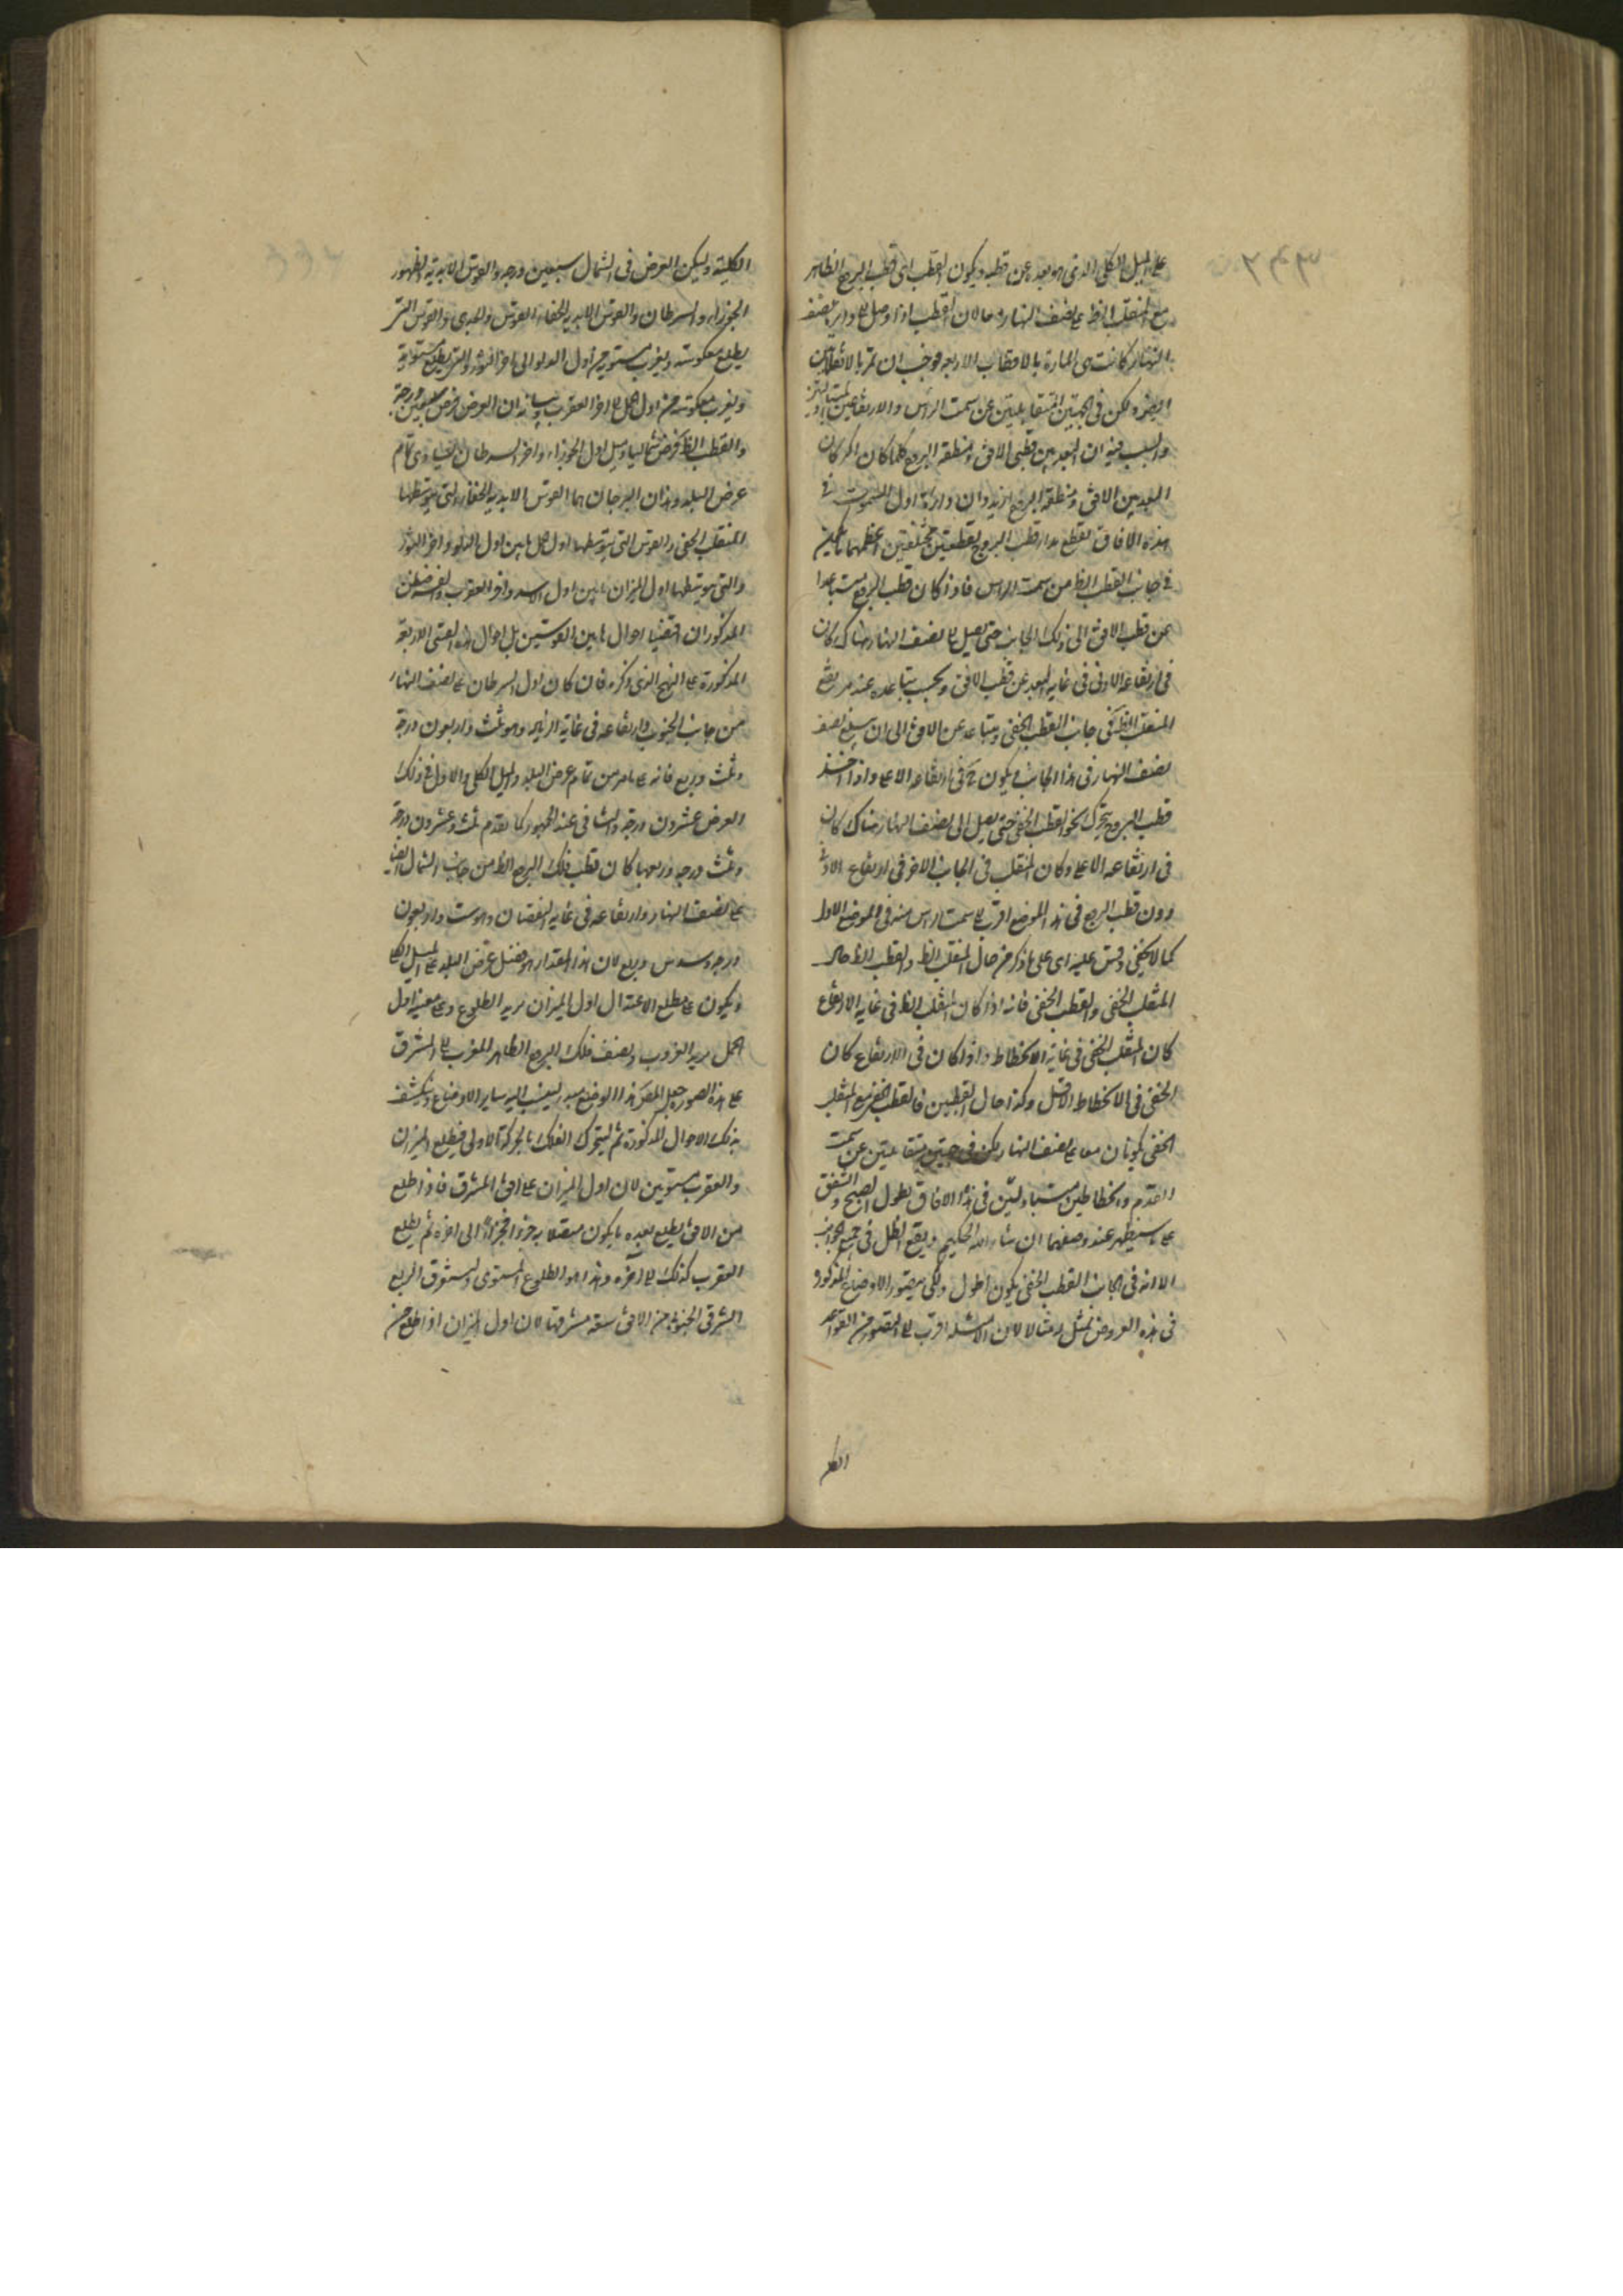 على الميل الكلى الذى هو بعده عن قطبه ويكون القطب اى قطب البروج الظاهر
مع المنقلب الظ على نصف النهار دائما لان القطب اذا وصل الى دايرة نصف
النهار كانت هى المارة بالاقطاب الاربعة فوجب ان تمر بالانقلابين
ايضا ولكن فى الجهتين المتقابلتين عن سمت الراس والارتفاعين
والسبب فيه ان البعد بين قطبى الافق ومنطقة البروج كلما كان اكثر كان
البعد بين الافق ومنطقة البروج ازيد وان دايرة اول السموت فى
هذه الافاق تقطع مدار قطب البروج بقطعتين مختلفتين اعظمهما ما يكون
فى جانب القطب الظ من سمت الراس فاذا كان قطب البروج متباعدا
عن قطب الافق الى ذلك الجانب حتى يصل الى نصف النهار هناك كان
فى ارتفاعه الادنى فى غاية البعد عن قطب الافق وبحسب تباعده عنه يرتفع
المنقلب الظ فى جانب القطب الخفى ويتباعد عن الافق الى ان يبلغ نصف
نصف النهار فى هذا الجانب ويكون ح فى ارتفاعه الاعلى واذا اخذ
قطب البروج يتحرك نحو القطب الخفى حتى يصل الى نصف النهار هناك كان
فى ارتفاعه الاعلى وكان المنقلب فى الجانب الاخر فى ارتفاع الادنى
دون قطب البروج فى هذا الموضع اقرب الى سمت الراس منه فى الموضع الاول
كما لا يخفى وقس عليه اى على ما ذكر من حال المنقلب الظ والقطب الظ حال
المنقلب الخفى والقطب الخفى فانه اذا كان المنقلب الظ فى غاية الارتفاع
كان المنقلب الخفى فى غاية الانحطاط واذا كان فى الارتفاع كان
الخفى فى الانحطاط الاقل وكذا حال القطبين فالقطب الخفى مع المنقلب
الخفى يكونان معا على نصف النهار لكن فى جهتين متقابلتين عن سمت
القدم وانحطاطين متبادلين فى هذه الافاق يطول الصبح والشفق
على ما سيظهر عند وصفهما ان شاء الله الحكيم ويقع الظل فى جميع الجوانب
الا انه فى جانب القطب الخفى يكون اطول ولكى يتصور الاوضاع المذكورة
فى هذه العروض نمثل له مثالا لان الامثلة اقرب الى التصور من القواعد
الكلية وليكن العرض فى الشمال سبعين درجة والقوس الابدية الظهور
الجوزاء والسرطان والقوس الابدية الخفاء القوس والجدى والقوس التى
يطلع معكوسة ويغرب مستوية من اول الدلو الى اخر الثور والتى يطلع مستوية
ويغرب معكوسة من اول الاسد الى اخر العقرب وبيانه ان العرض فرض سبعين درجة
والقطب الظ فرض شماليا وميل اول الجوزاء واخر السرطان يساوى تمام
عرض البلد وهذان البرجان هما القوس الابدية الخفاء التى يتوسطها
المنقلب الخفى والقوس التى يتوسطها اول الحمل ما بين اول الدلو واخر الثور
والتى يتوسطها اول الميزان ما بين اول الاسد واخر العقرب
المذكوران اقتضيا احوال ما بين القوسين بل احوال هذه القسى الاربعة
المذكورة على النهج الذى ذكره فان كان اول السرطان على نصف النهار
من جانب الجنوب وارتفاعه فى غاية الزيادة وهو ثلث واربعون درجة
وثلث وربع فانه على ما مر من تمام عرض البلد والميل الكلى والاول فى ذلك
العرض عشرون درجة والثانى عند الجمهور كما تقدم ثلث وعشرون درجة
وثلث درجة وربعها كان قطب فلك البروج الظ من جانب الشمال ايضا
على نصف النهار وارتفاعه فى غاية النقصان وهو ست واربعون
درجة وسدس وربع لان هذا المقدار هو فضل عرض البلد على الميل الكلى
ويكون على مطلع الاعتدال اول الميزان يريد الطلوع وعلى مغيبه اول
الحمل يريد الغروب ونصف فلك البروج الظاهر من المغرب الى المشرق
على هذه الصورة جعل المص هذا الوضع مبدأ لينسب اليه ساير الاوضاع وينكشف
بذلك الاحوال المذكورة ثم ليتحرك الفلك بالحركة الاولى فيطلع الميزان
والعقرب مستويين لان اول الميزان على افق المشرق فاذا طلع
من الافق يطلع بعده ما يكون متصلا به جزءا فجزءا الى اخره ثم يطلع
العقرب كذلك الى اخره وهذا هو الطلوع المستوى ويستغرق الربع
الشرقى الجنوبى من الافق سعة مشرقها لان اول الميزان اذا طلع من